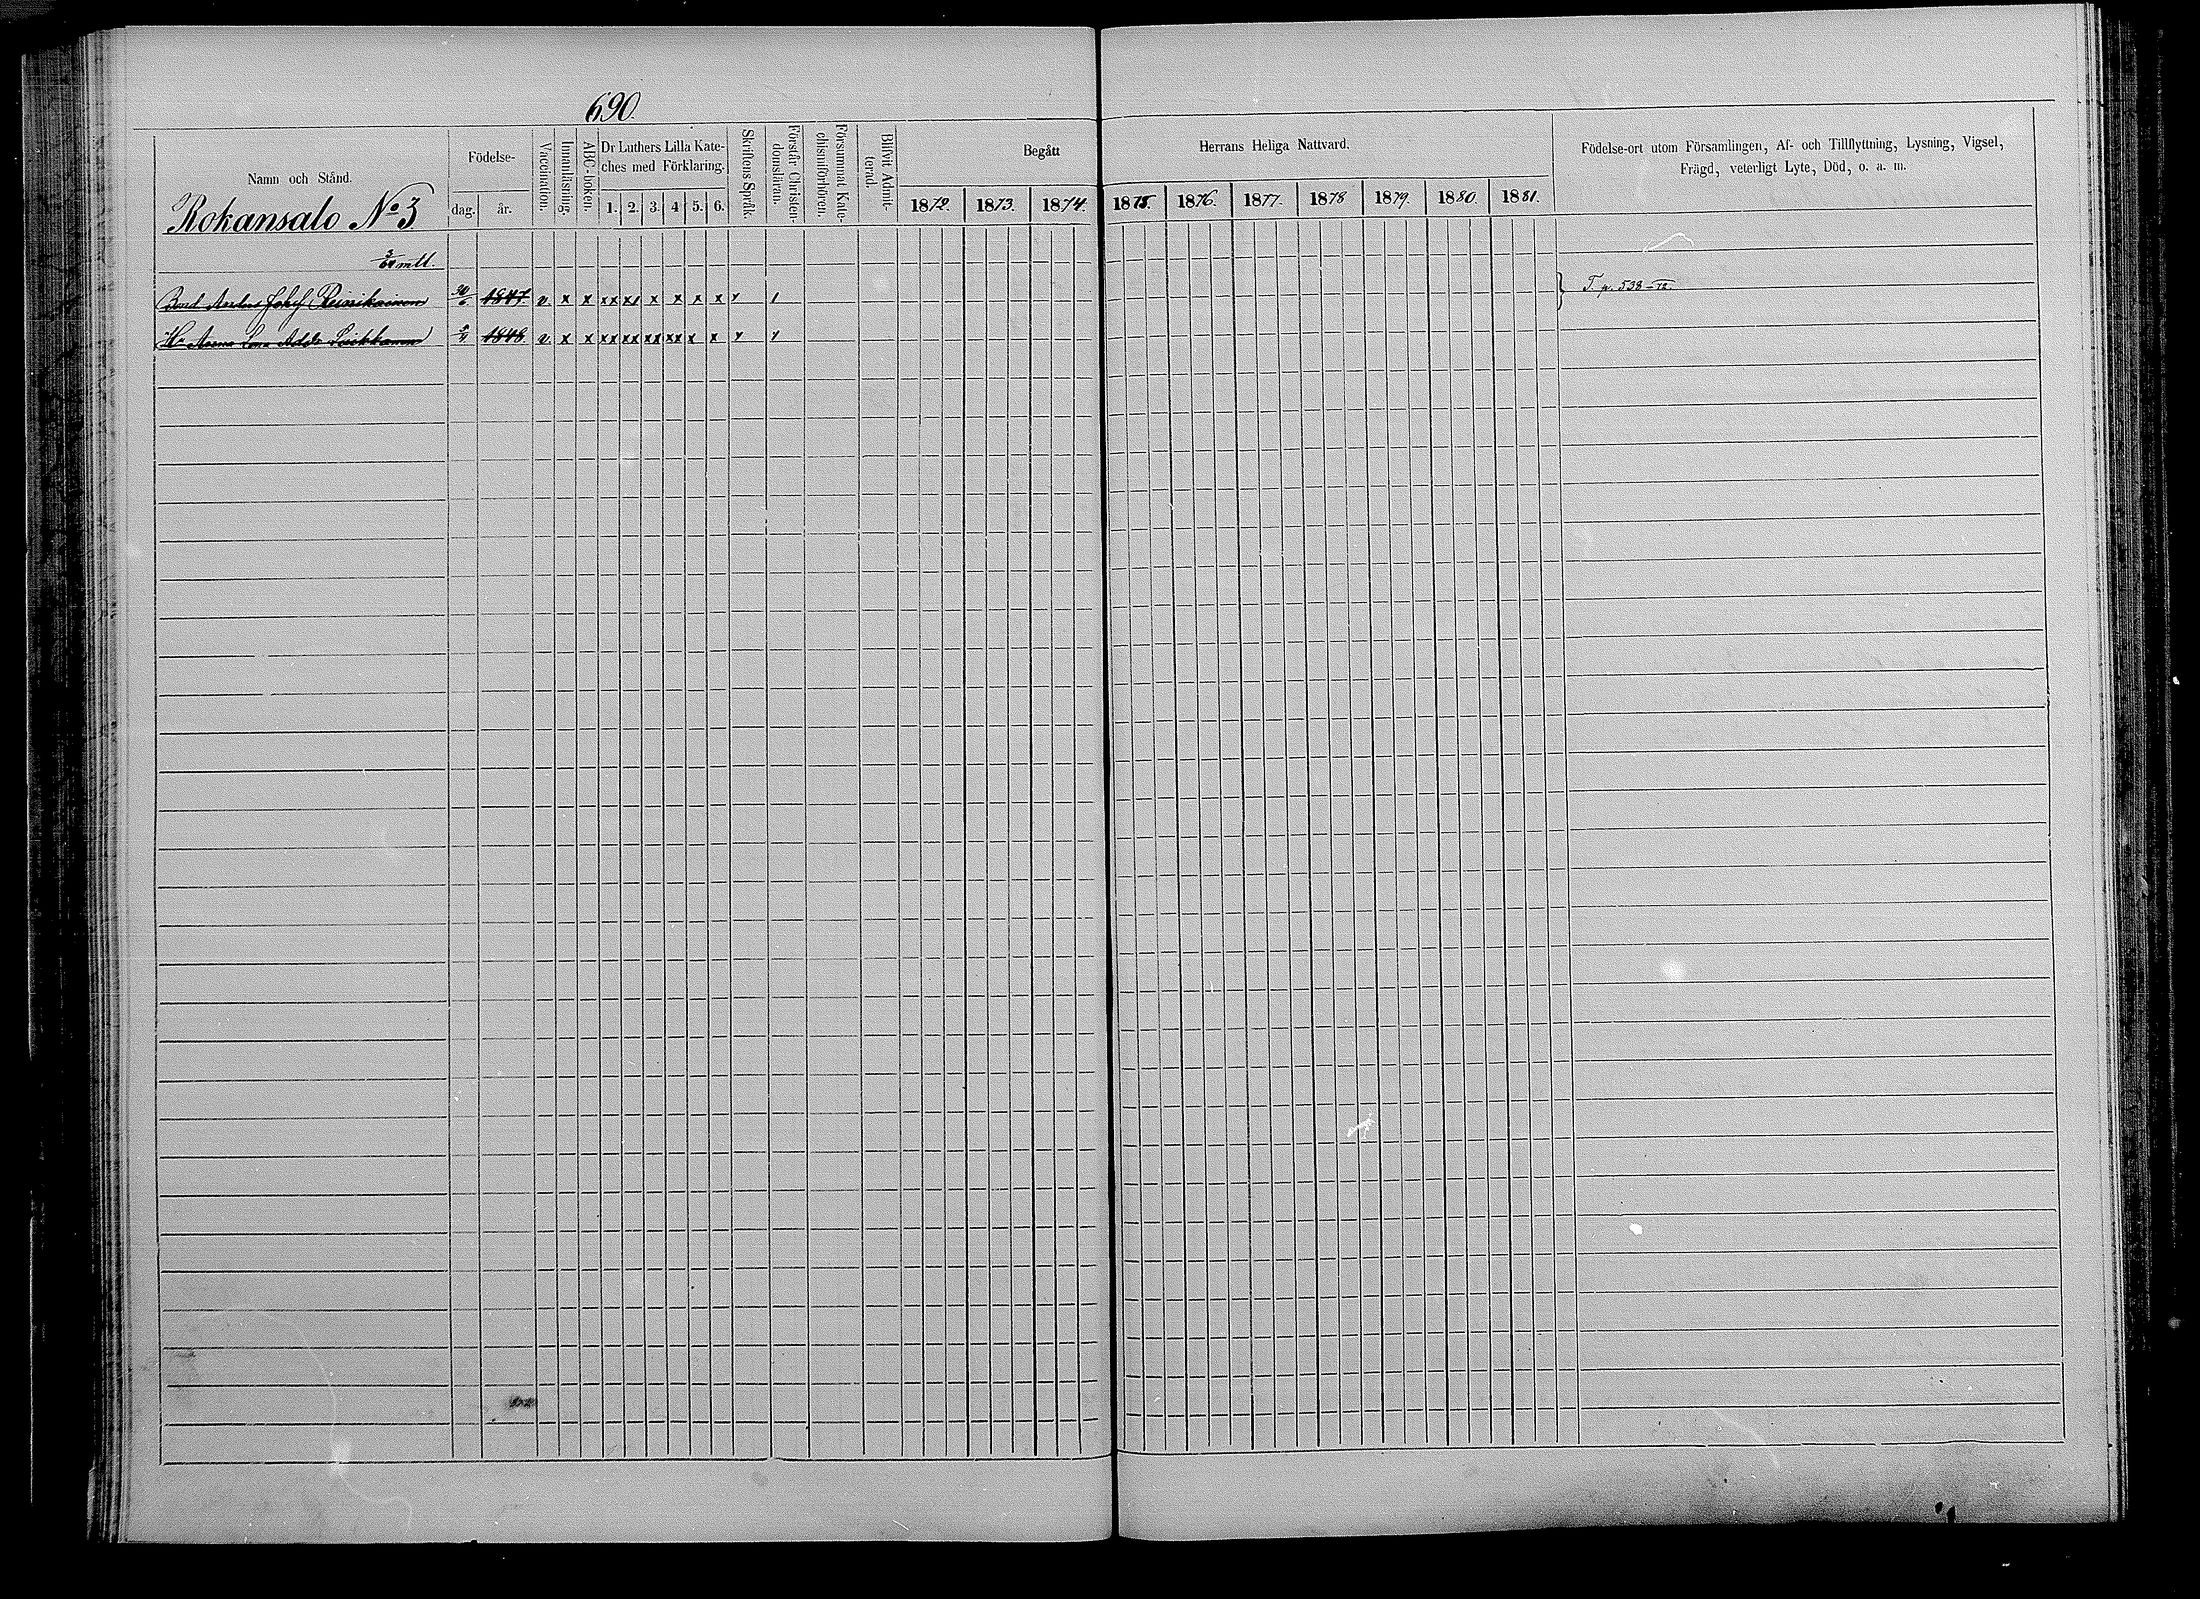 690.
Namn och Stånd.
Födelse-
dag. år.
Vaccination.
Innanläsning.
ABC-boken.
Dr Luthers Lilla Kate-
ches med Förklaring.
1. 2. 3. 4 5. 6.
Skriftens Språk.
Förstår Christen-
domsläran.
Försummat Kate-
chismiförhören.
Blifvit Admit-
terad.
Begått Herrans Heliga Nattvard.
1872. 1873. 1874. 1875. 1876. 1877. 1878 1879. 1880. 1881.
Födelse-ort utom Församlingen, Af- och Tillflyttning, Lysning, Vigsel,
Frägd, veterligt Lyte, Död, o. a. m.
Rokansalo No 3
mtl.
Bond. Anders Josef Reinikainen 1847 v. x x xx x x x x x
T. p. 538-72.
Hu Anna Lena 1848 v. x x xx xx xx xx x x